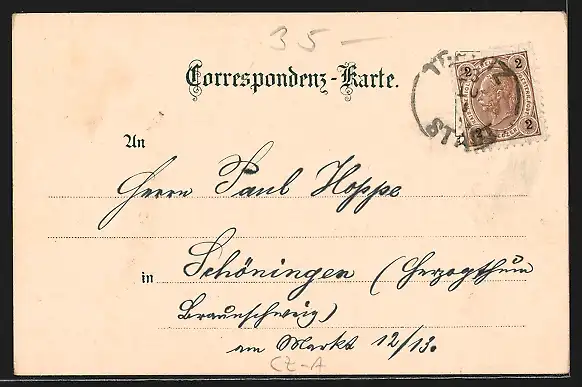 35 —
Correspondenz-Karte.
2 2
2
STADT
An
Herrn Paul Hoppe
in Schöningen (Herzogthum
Braunschweig)
am Markt 12/13.
CZ-A